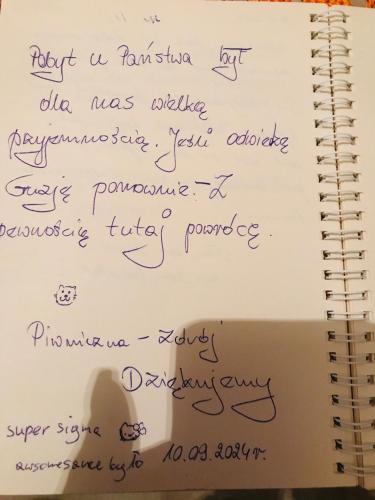 Pobyt u Państwa był
dla nas wielką
przyjemnością. Jeśli odwiedzę
Gruzję ponownie - Z
pewnością tutaj powrócę.
Piwniczna - Zdrój
Dziękujemy
super sigma
awsomesauce było 10.09.2024r.